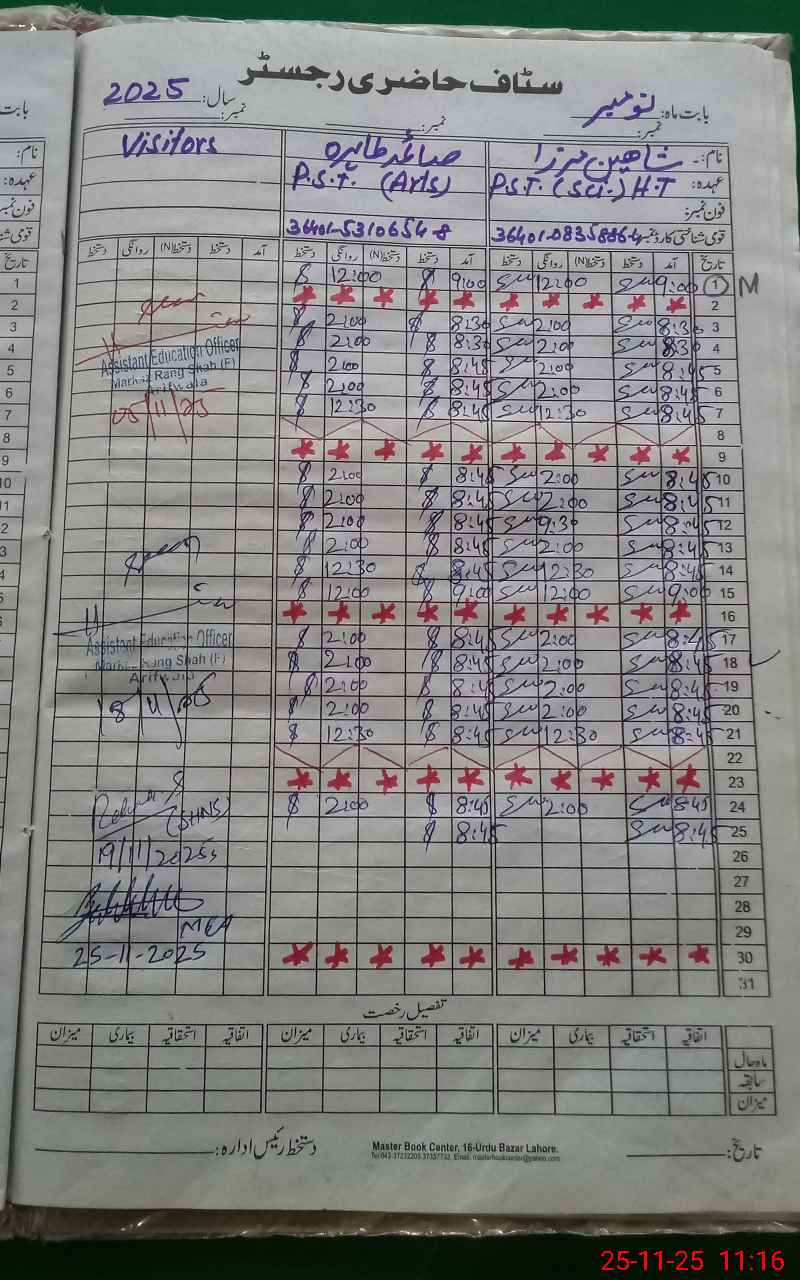 سٹاف حاضری رجسٹر
بابت ماہ: نومبر سال: 2025
نمبر: نمبر: نمبر:
نام: شاہین مرزا صائمہ طاہرہ Visitors
عہدہ: P.S.T. (Sci.) H.T P.S.T. (Arts)
فون نمبر:
قومی شناختی کارڈ نمبر 36401-0835886-4 36401-5310654-8
تاریخ آمد دستخط (N)دستخط روانگی دستخط آمد دستخط (N)دستخط روانگی دستخط آمد دستخط (N)دستخط روانگی دستخط
1 9:00 12:00 9:00 12:00 M
2 * * * * * * * * * *
3 8:30 2:00 8:30 2:00
4 8:30 2:00 8:30 2:00
5 8:45 2:00 8:45 2:00
6 8:45 2:00 8:45 2:00
7 8:45 12:30 8:45 12:30
8
9 * * * * * * * * * *
10 8:45 2:00 8:45 2:00
11 8:45 2:00 8:45 2:00
12 8:45 9:30 8:45 2:00
13 8:45 2:00 8:45 2:00
14 8:45 12:30 8:45 12:30
15 9:00 12:00 9:00 12:00
16 * * * * * * * * * *
17 8:45 2:00 8:45 2:00
18 8:45 2:00 8:45 2:00
19 8:45 2:00 8:45 2:00
20 8:45 2:00 8:45 2:00
21 8:45 12:30 8:45 12:30
22
23 * * * * * * * * * *
24 8:45 2:00 8:45 2:00
25 8:45 8:45
26
27
28
29
30 * * * * * * * * * *
31
Assistant Education Officer
Markaz Rang Shah (F)
Arifwala
05/11/25
Assistant Education Officer
Markaz Rang Shah (F)
Arifwala
18/11/25
(SHNS)
19/11/2025
MEA
25-11-2025
تفصیل رخصت
اتفاقیہ استحقاقیہ بیماری میزان اتفاقیہ استحقاقیہ بیماری میزان اتفاقیہ استحقاقیہ بیماری میزان
ماہ حال
سابقہ
میزان
تاریخ: دستخط رئیس ادارہ:
Master Book Center, 16-Urdu Bazar Lahore.
25-11-25 11:16